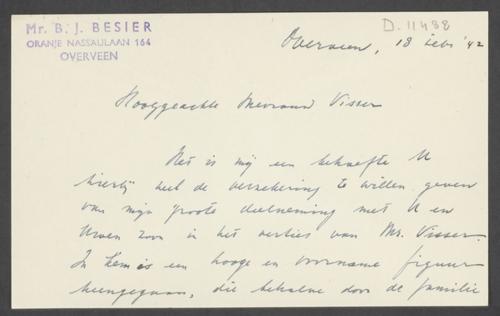 Mr. B. J. BESIER
ORANJE NASSAULAAN 164
OVERVEEN
D.11438
Overveen, 18 Febr '42
Hooggeachte Mevrouw Visser
Het is mij een behoefte U
hierbij de verzekering te willen geven
van mijn groote deelneming met U en
Uwen zoon in het verlies van Mr. Visser.
In hem is een hooge en voorname figuur
heengegaan, die behalve door de familie